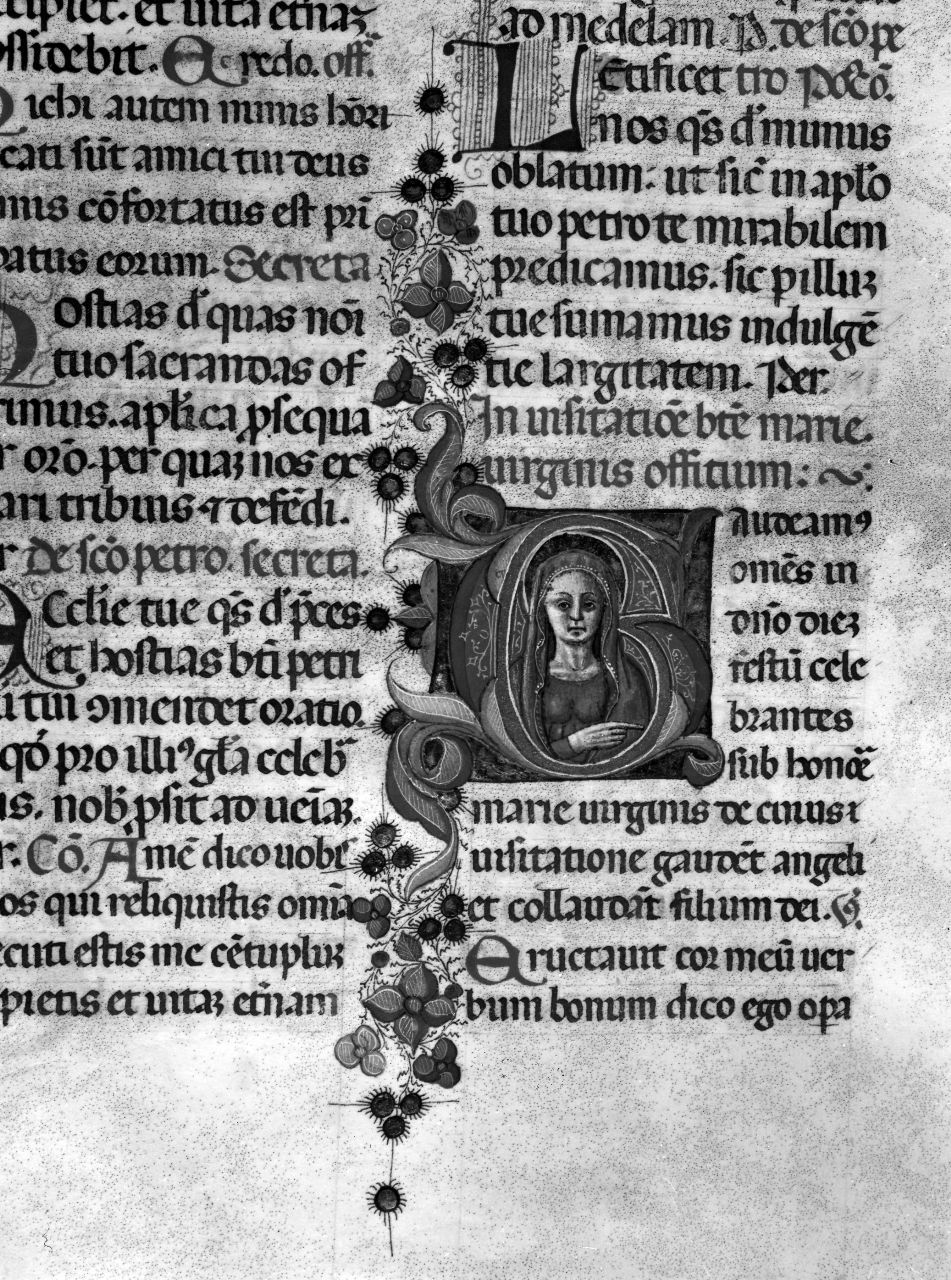 cipiet. et uita et̄naꝫ
ossidebit. Credo. off.
ichi autem nimis hōri
cati sūt amici tui deus
imis cōfortatus est pri
patus eorum. Secreta
Hostias d̄ quas noī
tuo sacrandas of
rimus. apl̄ica ꝓsequa
r orō. per quaꝫ nos ex
ari tribuis ⁊ defēdi.
r De scō petro. secreta.
Accl̄ie tue qs̄ d̄ p̄ces
et hostias bt̄i petri
tui ꝯmendet oratio.
qō pro illiꝰ gl̄a celeb̄
us. nob̄ ꝓsit ad ueīaꝫ.
r. Cō. Amē dico uobꝭ
os qui reliquistis omīa
ecuti estis me cētupluꝫ
pietis et uitaꝫ et̄nam
ad medelam. P. de scō pe
Letificet tro Poscō.
nos qs̄ d̄ munus
oblatum: ut sic̄ in apl̄o
tuo petro te mirabilem
predicamus. sic p illuꝫ
tue sumamus indulgē
tie largitatem. Per.
In uisitatiōe btē marie
uirginis offitium:
Gaudeamꝯ
omēs in
dn̄o dieꝫ
festū cele
brantes
sub honoē
marie uirginis de cuius
uisitatione gaudēt angeli
et collaudāt filium dei. V̄.
Eructauit cor meū uer
bum bonum dico ego opa